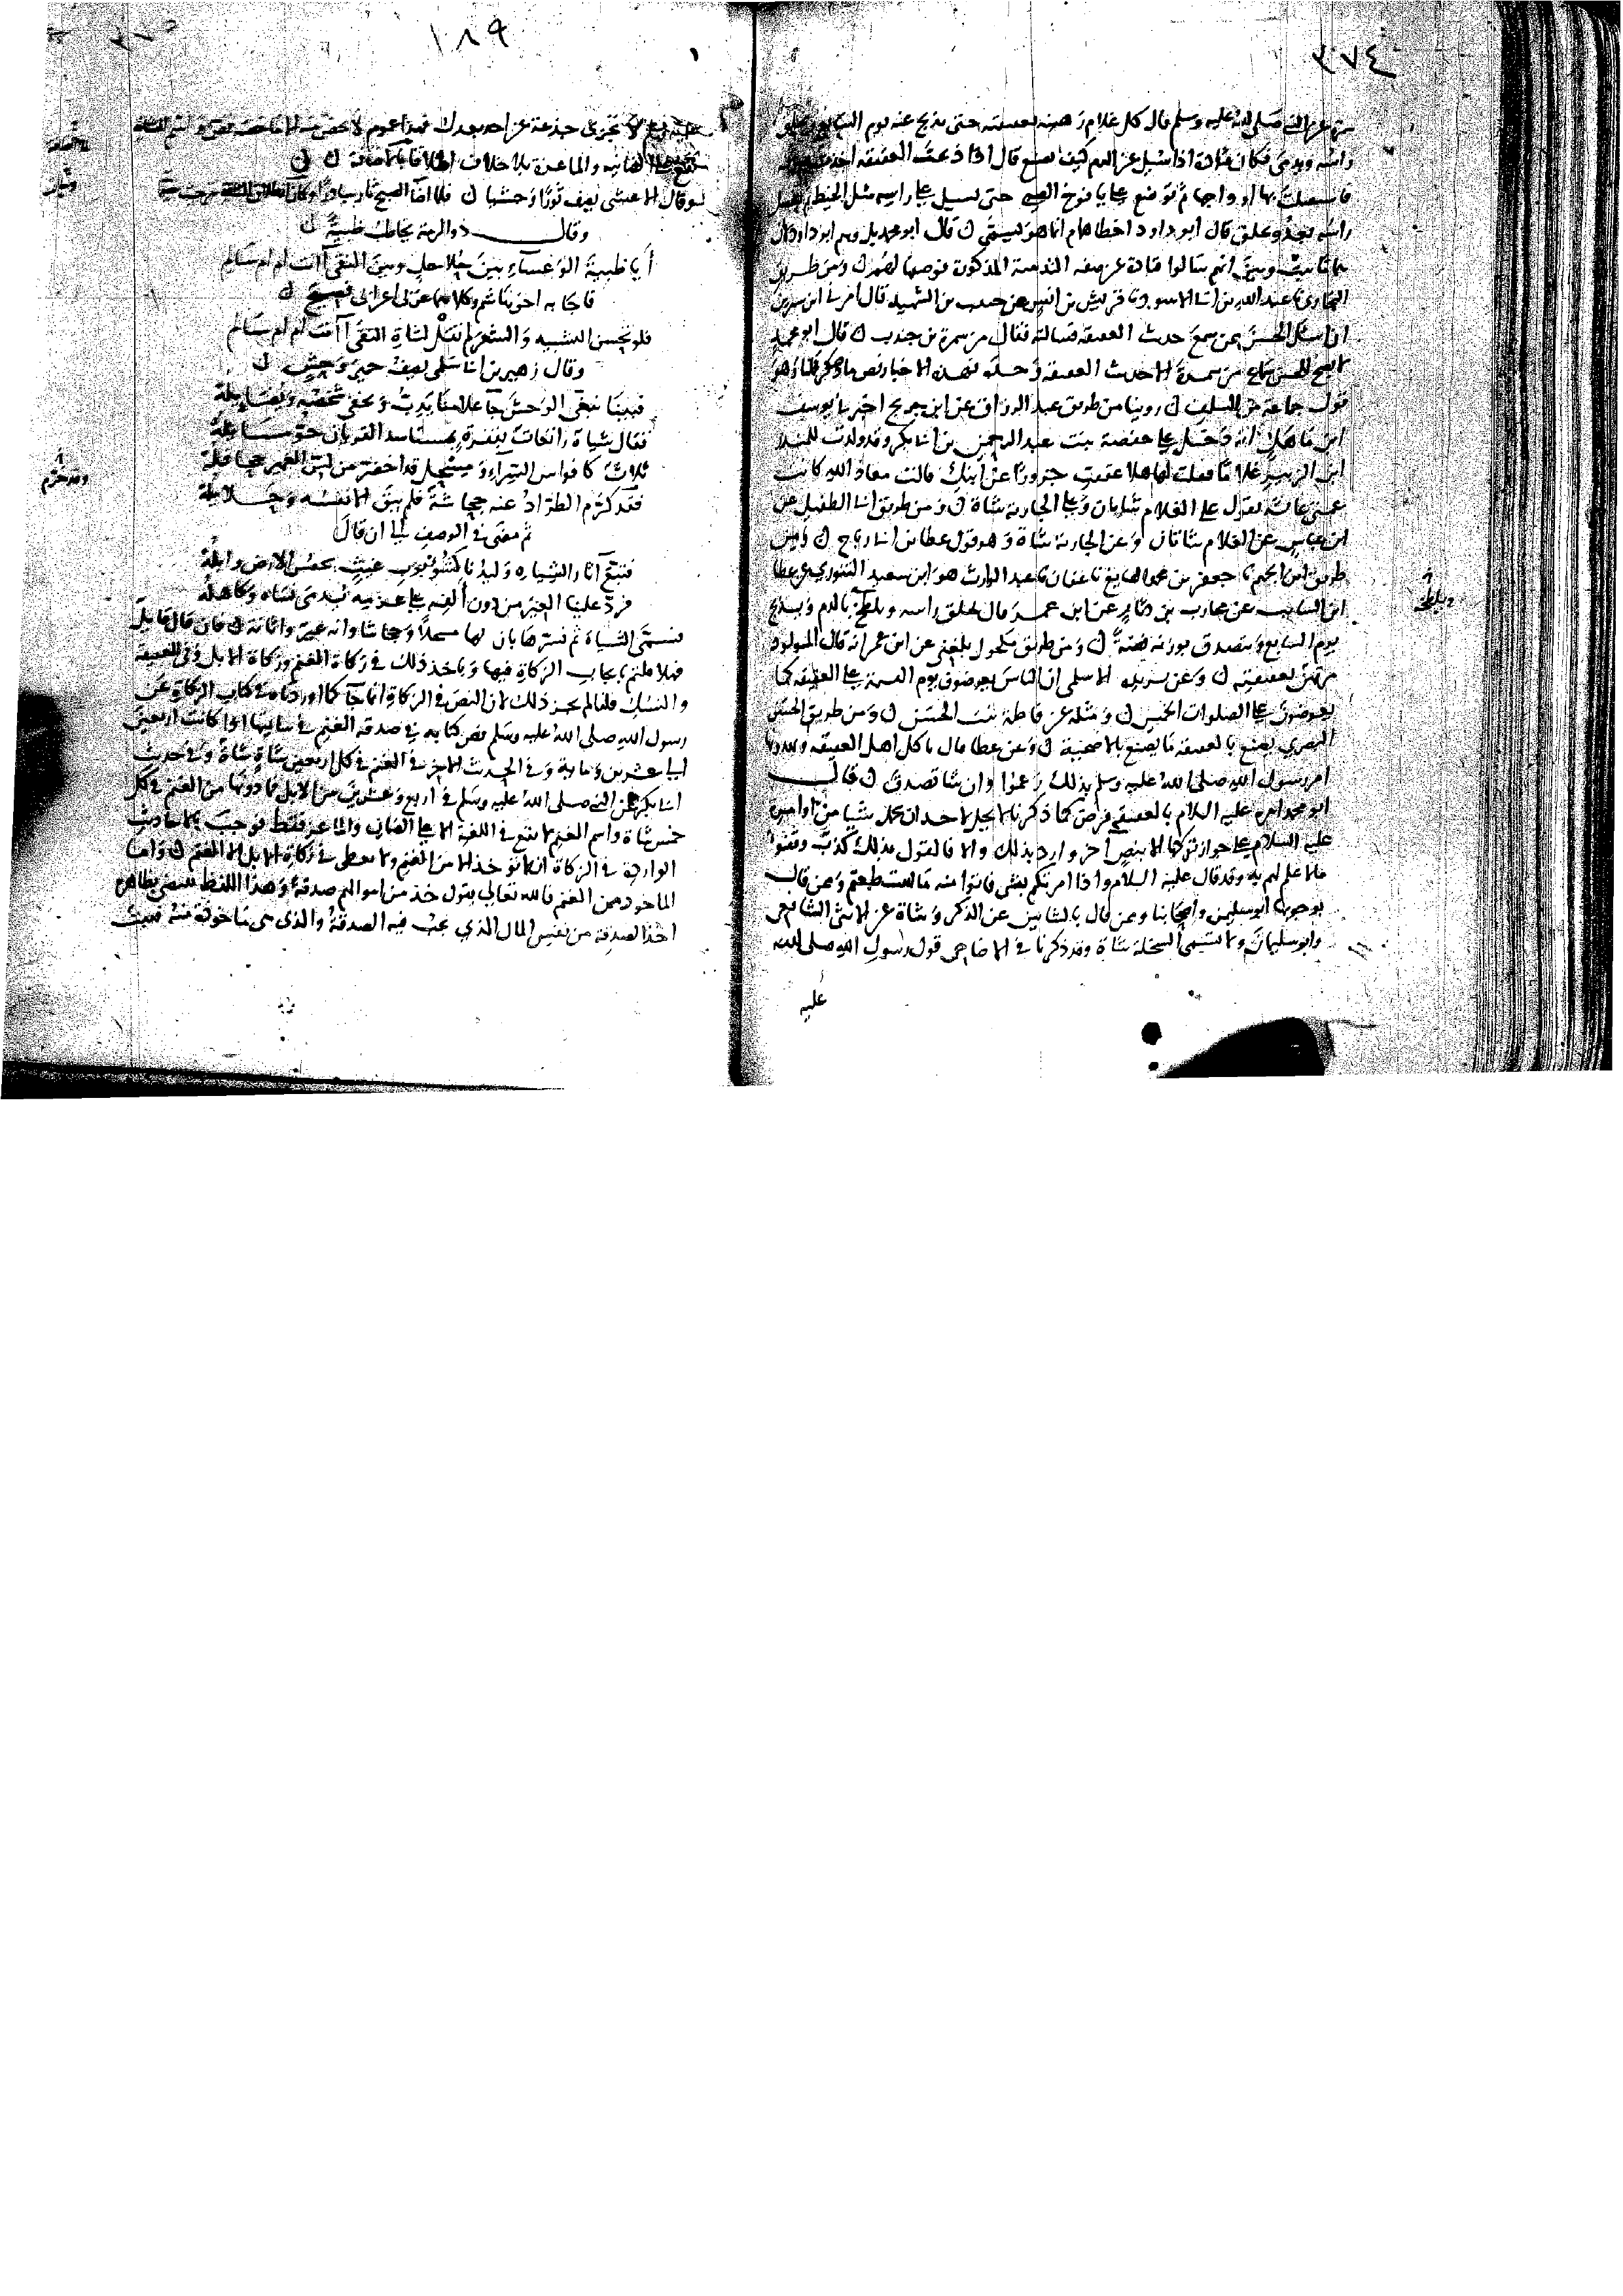 ٣٧٤
عن النبي صلى الله عليه وسلم قال كل غلام رهينه بعقيقته حتى يذبح عنه يوم السابع ويحلق
راسه ويدمى فكان قتادة اذا سيل عن الدم كيف يصنع قال اذا ذبحت العقيقه اخذت
فاستقبلت بها اوداجها ثم توضع على يافوخ الصبي حتى تسيل على راسه مثل الخيط ثم يغسل
راسه بعد ويحلق قال ابو داود اخطا همام انما هو يسمى قال ابو محمد بل وهم ابو داود لان
هماما ثبت وبين انهم سالوا قتادة عن صفه التدمية المذكورة فوصفها لهم ومن طريق
البخاري نا عبد الله بن ابي الاسود نا قريش بن انس عن حبيب بن الشهيد قال امرني ابن سيرين
ان اسئل الحسن ممن سمع حديث العقيقه فسالته فقال من سمرة بن جندب قال ابو محمد
لا يصح للحسن سماع من سمرة الا حديث العقيقه وحده فهذه الاخبار نص ما ذكرنا وهو
قول جماعة من السلف روينا من طريق عبد الرزاق عن ابن جريج اخبرنا يوسف
ابن ماهك انه دخل على حفصة بنت عبد الرحمن بن ابي بكر وقد ولدت للمنذر
ابن الزبير غلاما فقلت لها هلا عققت جزورا عن ابنك قالت معاذ الله كانت
عمتي عائشه تقول على الغلام شاتان وعلى الجارية شاة ومن طريق ابي الطفيل عن
ابن عباس عن الغلام شاتان وعن الجارية شاة وهو قول عطا بن ابي رباح ومن
طريق ابن الجهم نا جعفر بن محمد الصايغ نا عفان نا عبد الوارث هو ابن سعيد التنوري عن عطا
ابن السايب عن محارب بن دثار عن ابن عمر قال يحلق راسه ويلطخ بالدم ويذبح
يوم السابع ويتصدق بوزنه فضة ومن طريق مكحول بلغني عن ابن عمر انه قال المولود
مرتهن بعقيقته وعن بريده الاسلمي ان الناس يعرضون يوم القيمة على العقيقه كما
يعرضون على الصلوات الخمس ومثله عن فاطمة بنت الحسين ومن طريق الحسن
البصري يصنع بالعقيقه ما يصنع بالاضحية وعن عطا قال ياكل اهل العقيقه ويهدونها
امر رسول الله صلى الله عليه وسلم بذلك زعموا وان شا تصدق قال
ابو محمد امره عليه السلام بالعقيقه فرض كما ذكرنا لا يحل لاحد ان يحمل شيا من اوامره
عليه السلام على جواز تركها الا بنص اخر وارد بذلك والا فالقول بذلك كذب وقفوا
ما لا علم لهم به وقد قال عليه السلام واذا امرتكم بشي فاتوا منه ما استطعتم وممن قال
بوجوبها ابو سليمن واصحابنا وممن قال بالشاتين عن الذكر وشاة عن الانثى الشافعي
وابو سليمان ولا تسمى السخلة شاة وقد ذكرنا في الاضاحي قول رسول الله صلى الله
عليه
ويلطخ
١٨٩
عليه وسلم لا تجزي جذعة عن احد بعدك فهذا عموم لا يخص منه الا ما خصه نص واسم الشاة
يقع على الضانيه والماعزة بلا خلاف اطلاقا بلا اضافة
وقال الاعشى يصف ثورا وحشيا فلما اضا الصبح قام مبادرا وكان انطلاق الشاة من حيث خيما
وقال ذو الرمة يخاطب ظبية
أيا ظبية الوعساء بين جلاجل وبين النقى أأنت ام ام سالم
فاجابه اخوه هشام وكلاهما عربي اعرابي فصيح
فلو تحسن التشبيه والشعر لم تقل لشاة النقى أأنت ام ام سالم
وقال زهير بن ابي سلمى يصف حمير وحش
فبينا نبغى الوحش جا غلامنا يدب ويخفي شخصه ويضايله
فقال شياه راتعات بقفرة بمستاسد القريان حو مسايله
ثلاث كاقواس السراء ومسحل قد اخضر من لس الغمير جحافله
فقد كرم الطراد عنه جحاشه فلم يبق الا نفسه وحلايله
ثم مضى في الوصف الى ان قال
فتبع آثار الشياه وليدنا كشؤبوب غيث يحفش الارض وابله
فرد علينا العير من دون ألفه على رغمه يدمى نساه وكاهله
فسمى الشياه ثم فسرها بان لها مسحلا وجحاشا وانه عير واتانه فان قال قايل
فهلا قلتم بايجاب الزكاة فيها وباخذ ذلك في زكاة الغنم وزكاة الابل وفي العقيقة
والنسك قلنا لم يجز ذلك لان النص في الزكاة انما جا كما اوردناه في كتاب الزكاة عن
رسول الله صلى الله عليه وسلم نص كتابه في صدقه الغنم في سائمتها اذا كانت اربعين
الى عشرين وماية وفي الحديث الاخر في الغنم في كل اربعين شاة شاة وفي حديث
ابي بكر عن النبي صلى الله عليه وسلم في اربع وعشرين من الابل فما دونها من الغنم في كل
خمس شاة واسم الغنم لا يقع في اللغة الا على الضان والماعز فقط فوجب بالاحاديث
الواردة في الزكاة ان لا توخذ الا من الغنم ولا يعطى في زكاة الابل الا الغنم واما
الماخوذ من الغنم فالله تعالى يقول خذ من اموالهم صدقة وهذا اللفظ يقتضي بظاهره
اخذ الصدقة من نفس المال الذي تجب فيه الصدقة والذي هي ماخوذة منه فثبت
وقد خرم